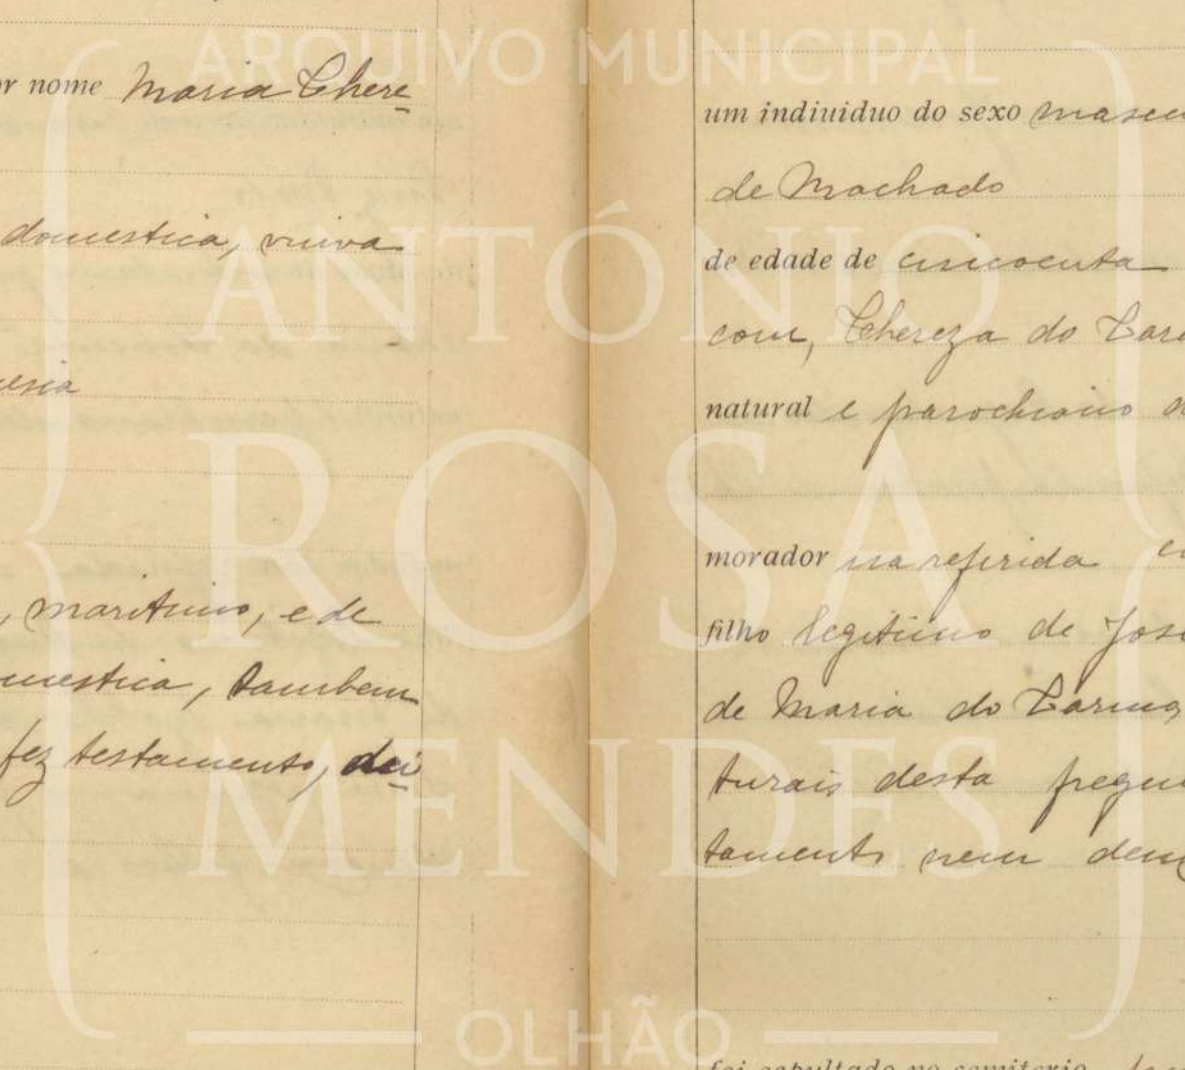 ARQUIVO MUNICIPAL
ANTÓNIO
ROSA
MENDES
OLHÃO
or nome Maria There
domestica, viuva
, maritimo, e de
mestica, tambem
fez testamento, dei
um indiuiduo do sexo mascu
de Machado
de edade de cincoenta
com, Thereza do Carm
natural e parochiano d
morador na referida
filho legitimo de José
de Maria do Carmo
turais desta fregue
tamento nem deu
foi sepultado no cemiterio